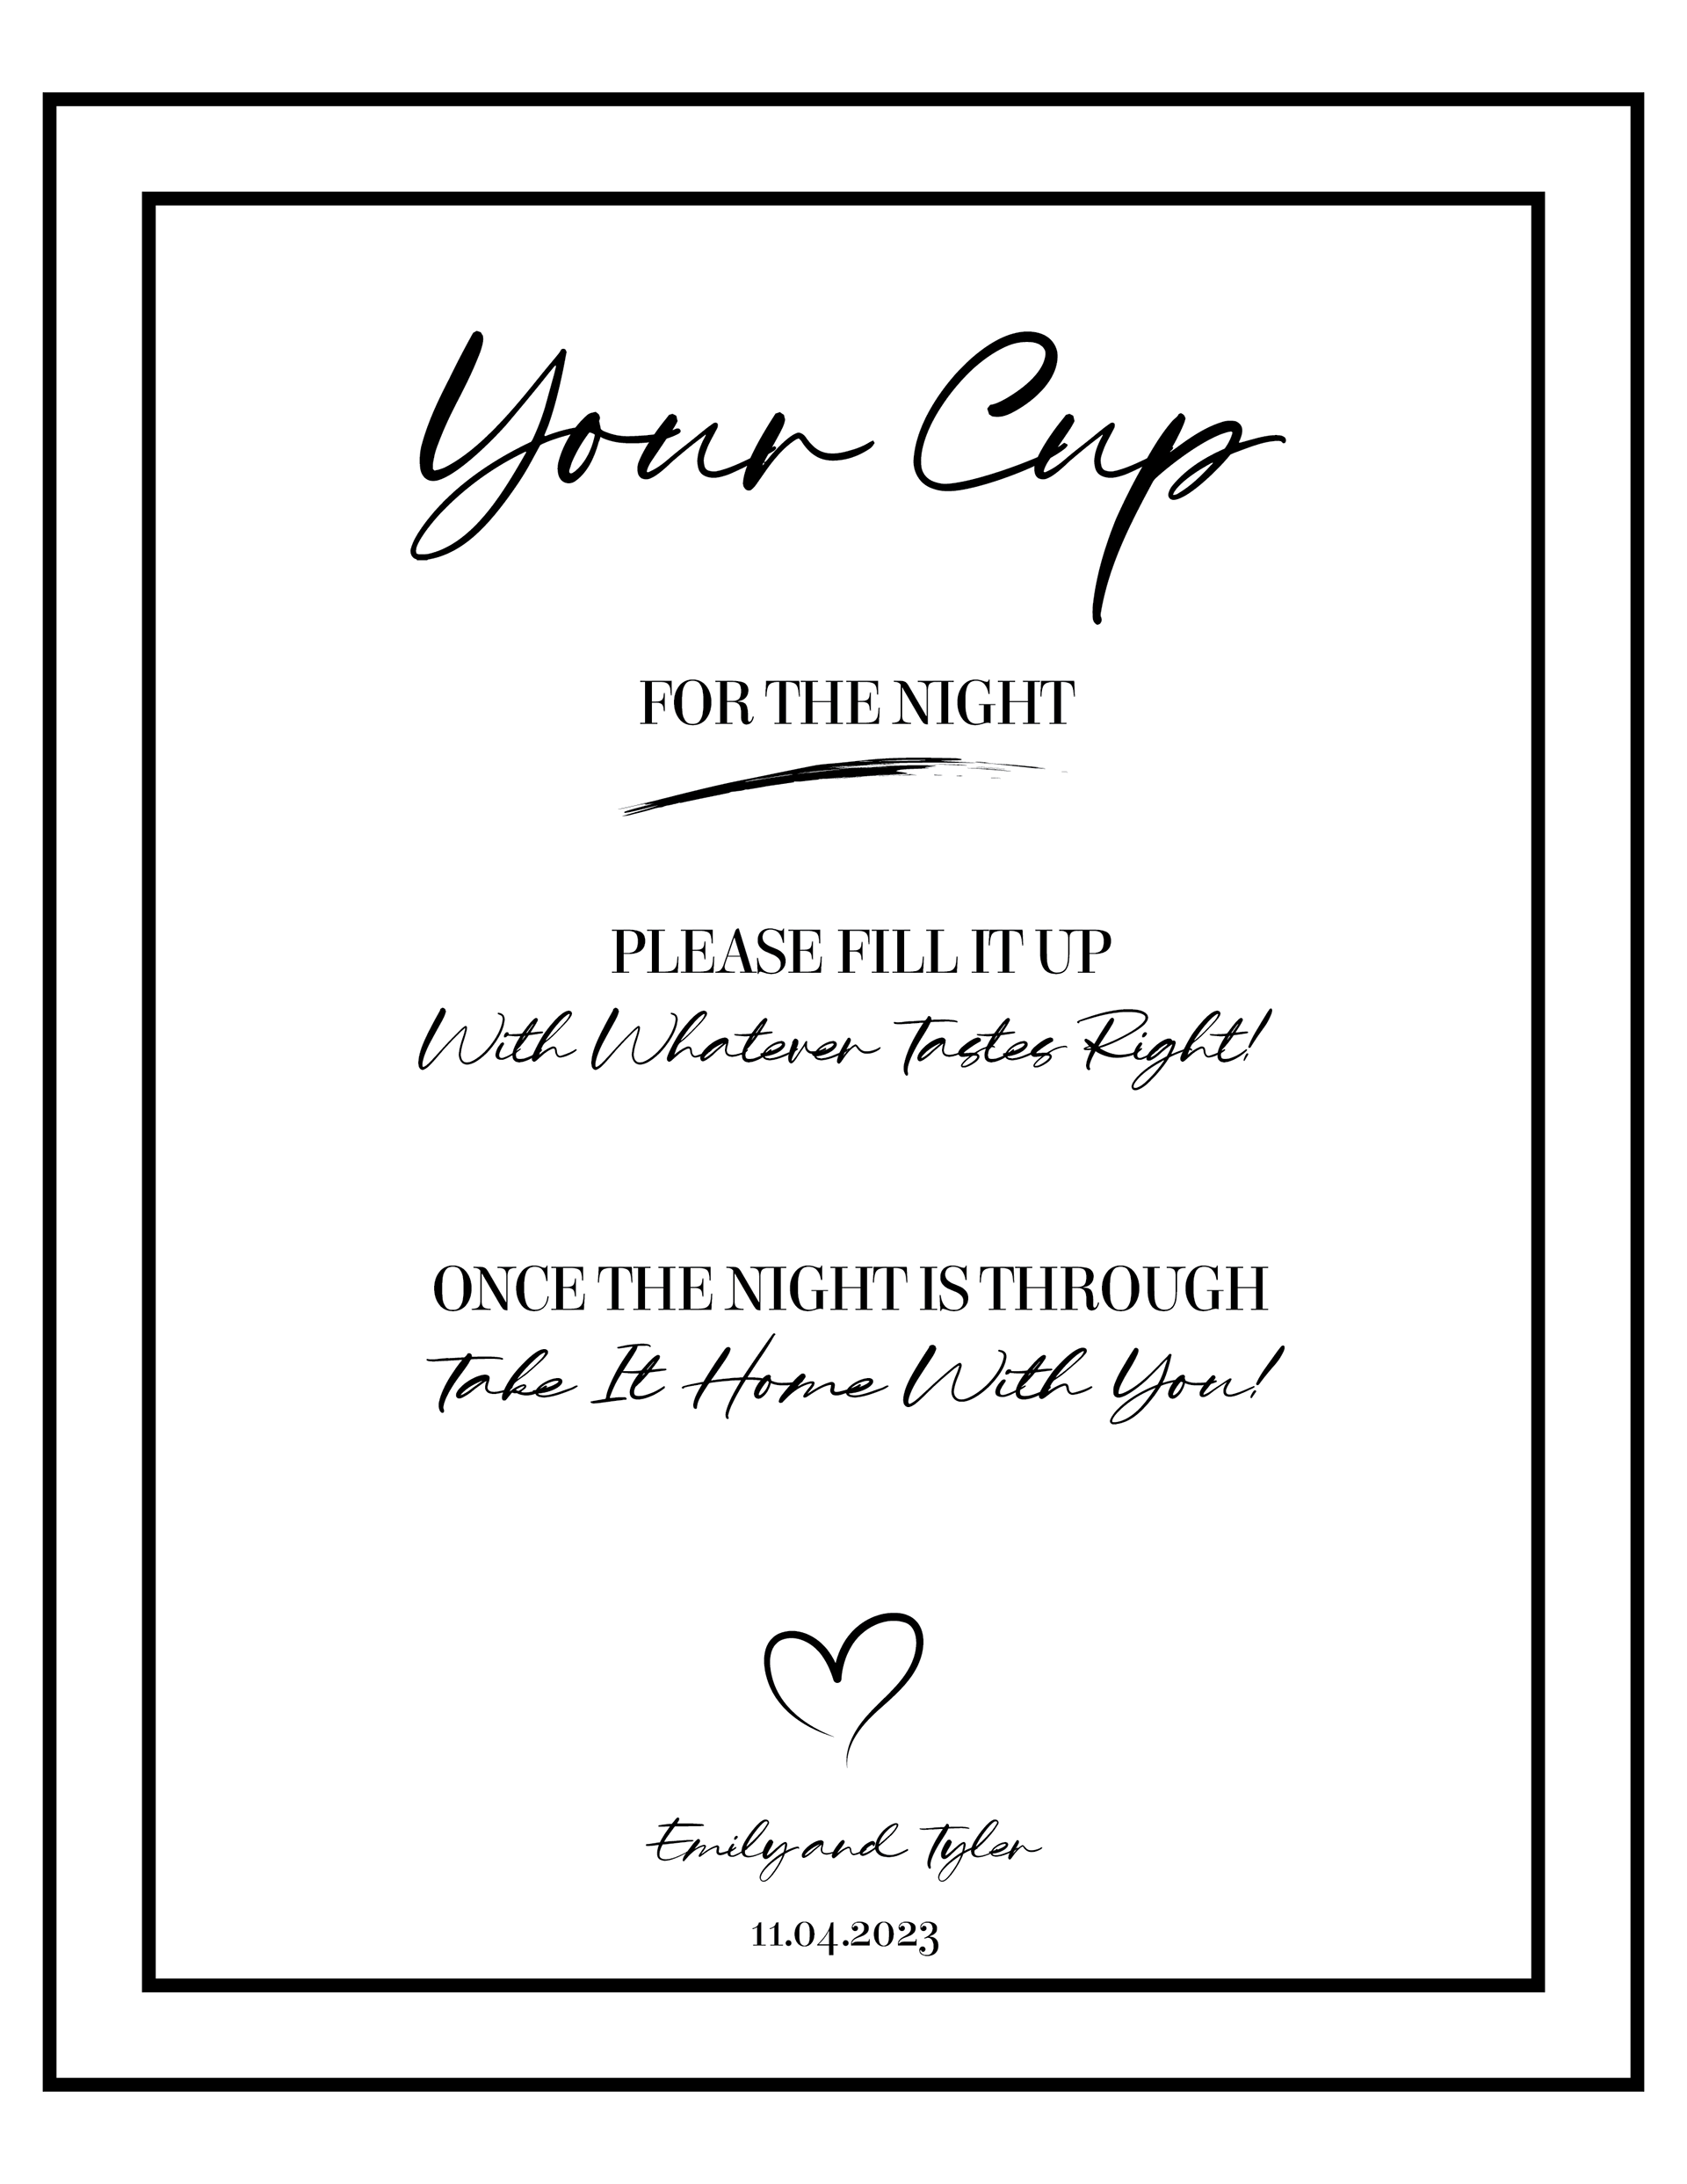 Your Cup
FOR THE NIGHT
PLEASE FILL IT UP
With Whatever Tastes Right!
ONCE THE NIGHT IS THROUGH
Take It Home With You!
Emily and Tyler
11.04.2023